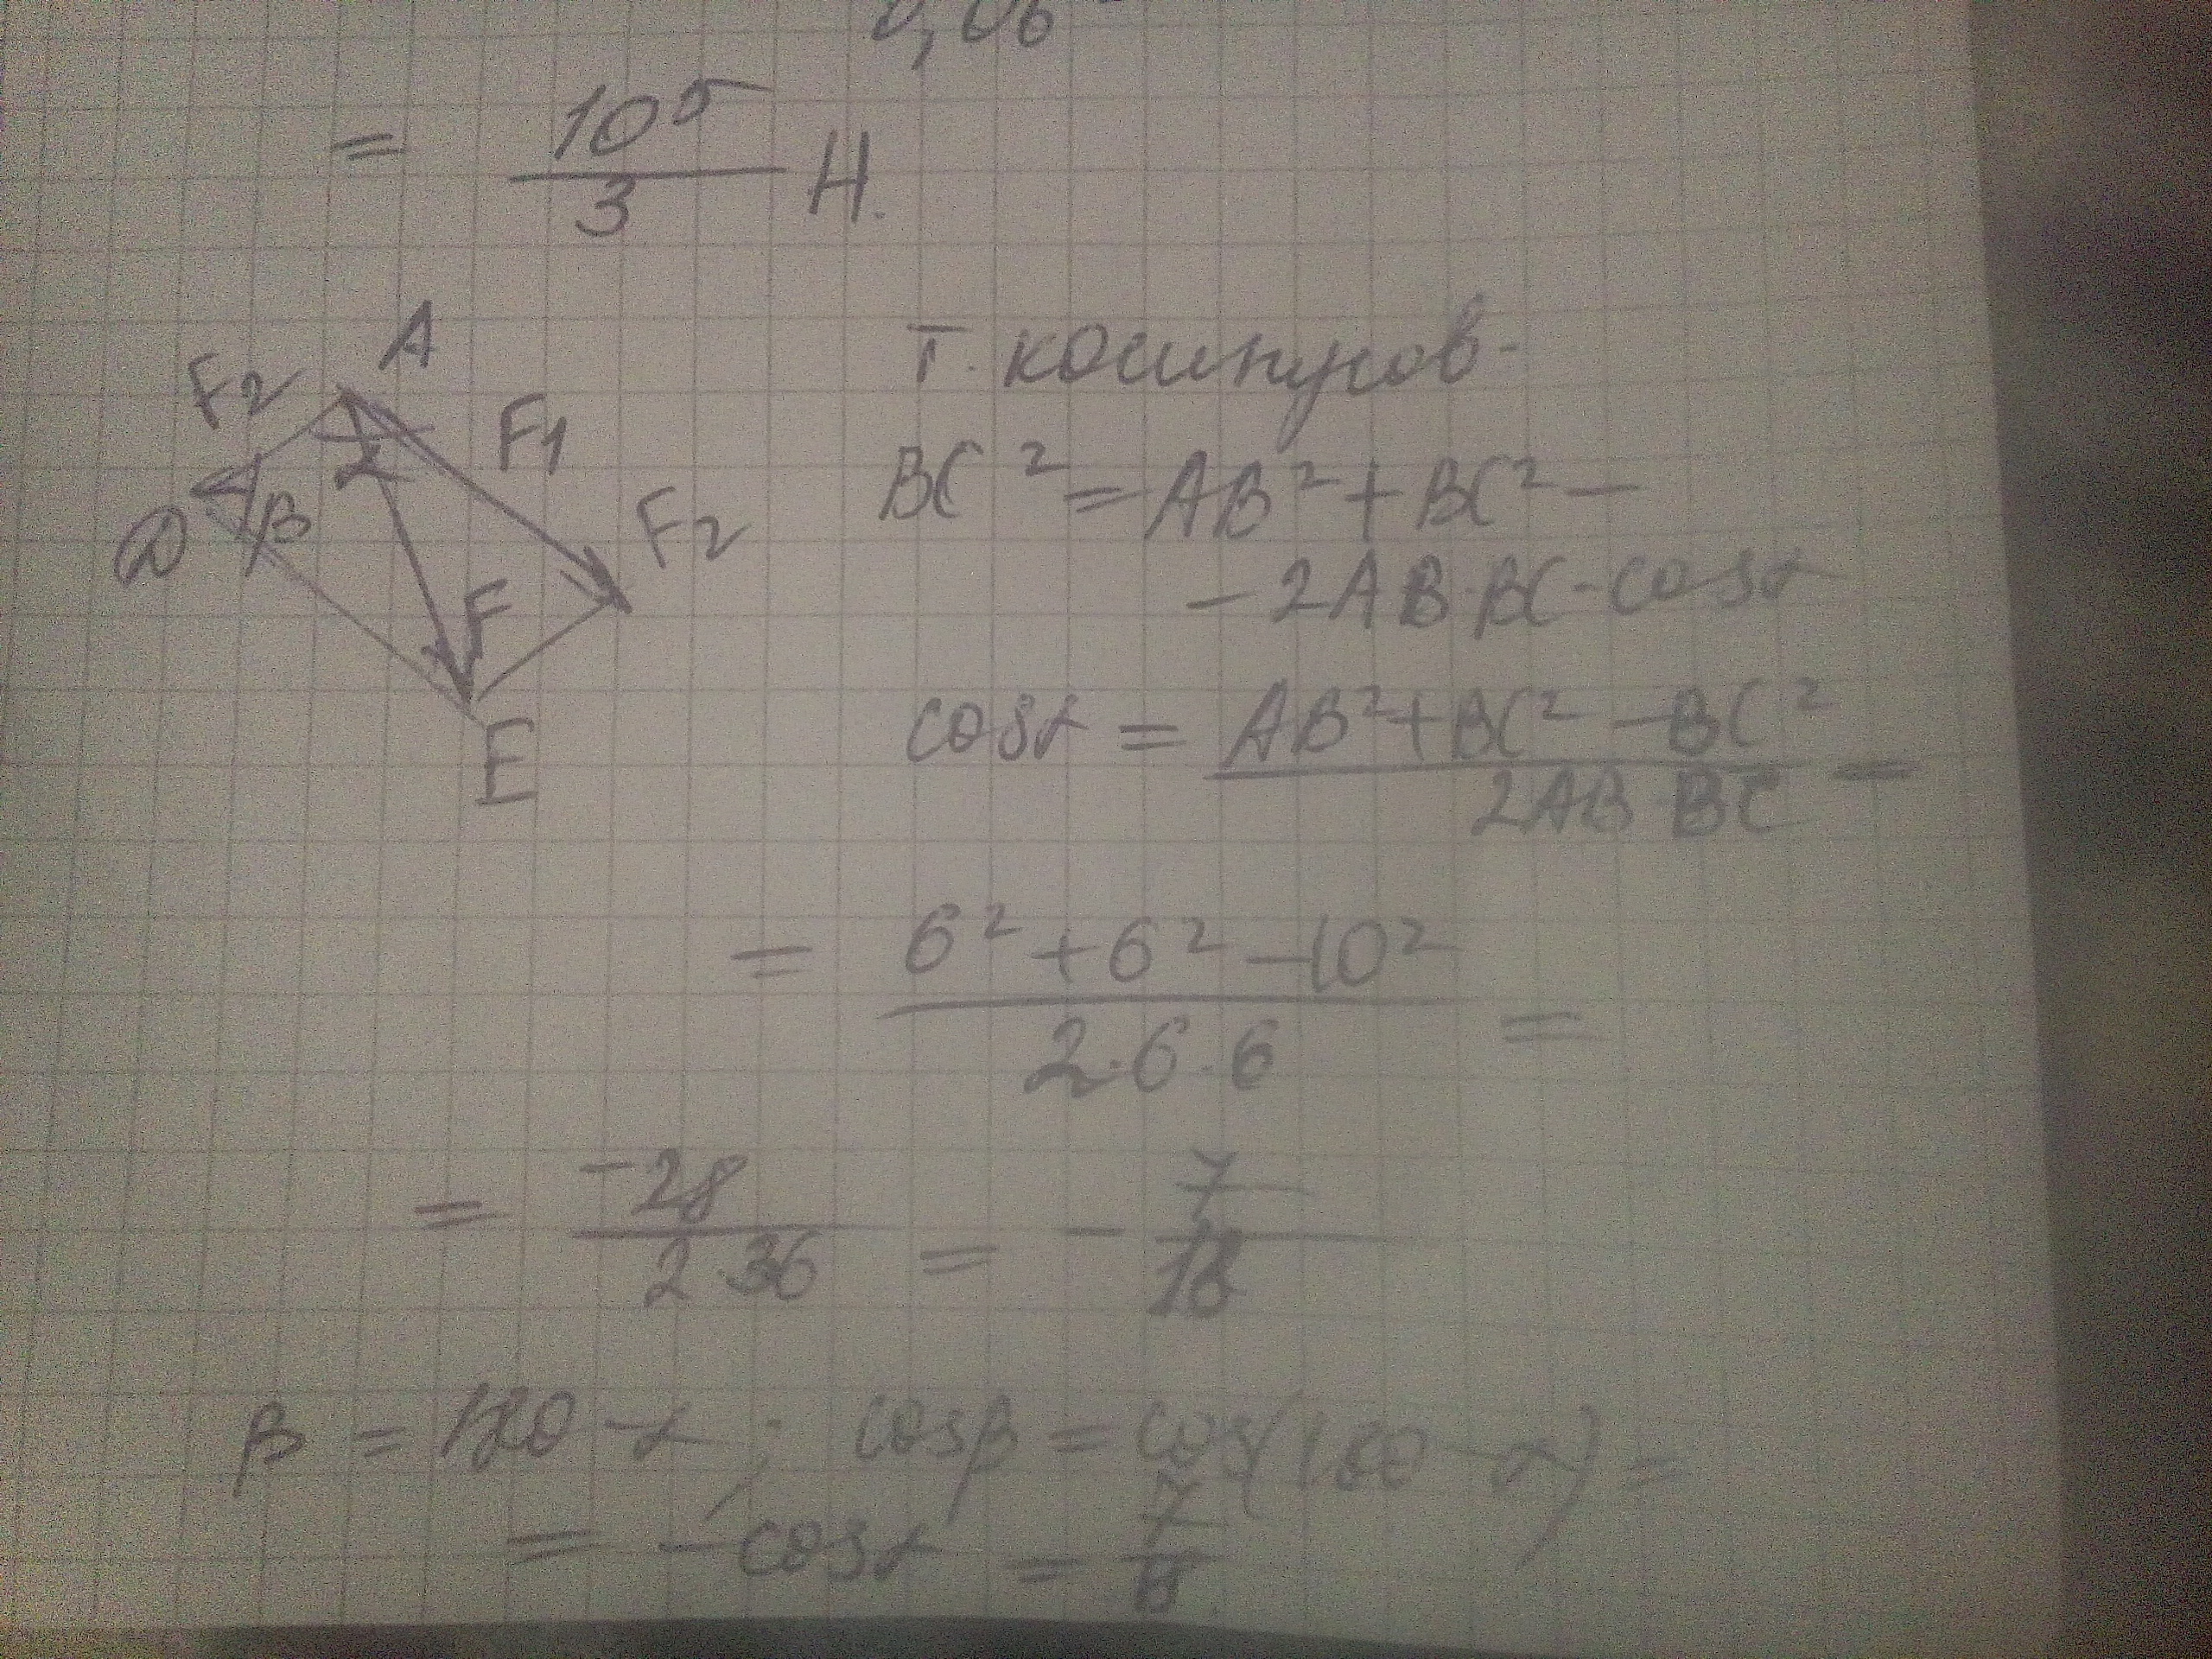 0,06
= 10⁵/3 Н.
A
F2
F1
F2
D
β
α
F
E
Т. косинусов.
BC² = AB² + BC² –
– 2AB·BC·cosα
cosα = (AB² + BC² – BC²)/(2AB·BC) =
= (6² + 6² – 10²)/(2·6·6) =
= –28/(2·36) = –7/18
β = 180 – α; cosβ = cos(180 – α) =
= –cosα =